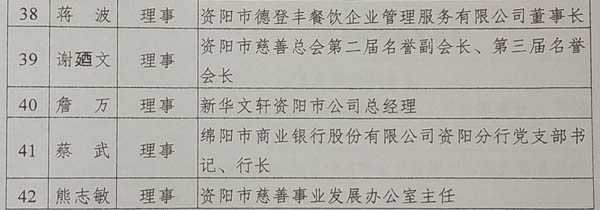 38 蒋波 理事 资阳市德登丰餐饮企业管理服务有限公司董事长
39 谢廼文 理事 资阳市慈善总会第二届名誉副会长、第三届名誉
会长
40 詹万 理事 新华文轩资阳市公司总经理
41 蔡武 理事 绵阳市商业银行股份有限公司资阳分行党支部书
记、行长
42 熊志敏 理事 资阳市慈善事业发展办公室主任